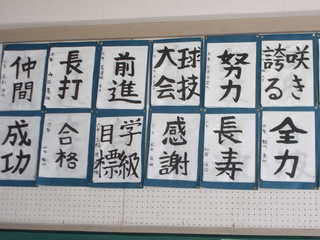 仲間
長打
前進
球技大会
努力
咲き誇る
成功
合格
学級目標
感謝
長寿
全力